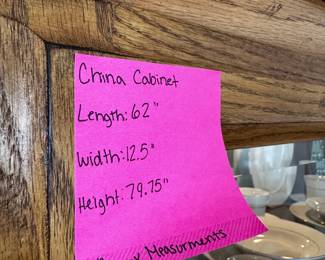 China Cabinet
Length: 62"
Width: 12.5"
Height: 79.75"
Measurments